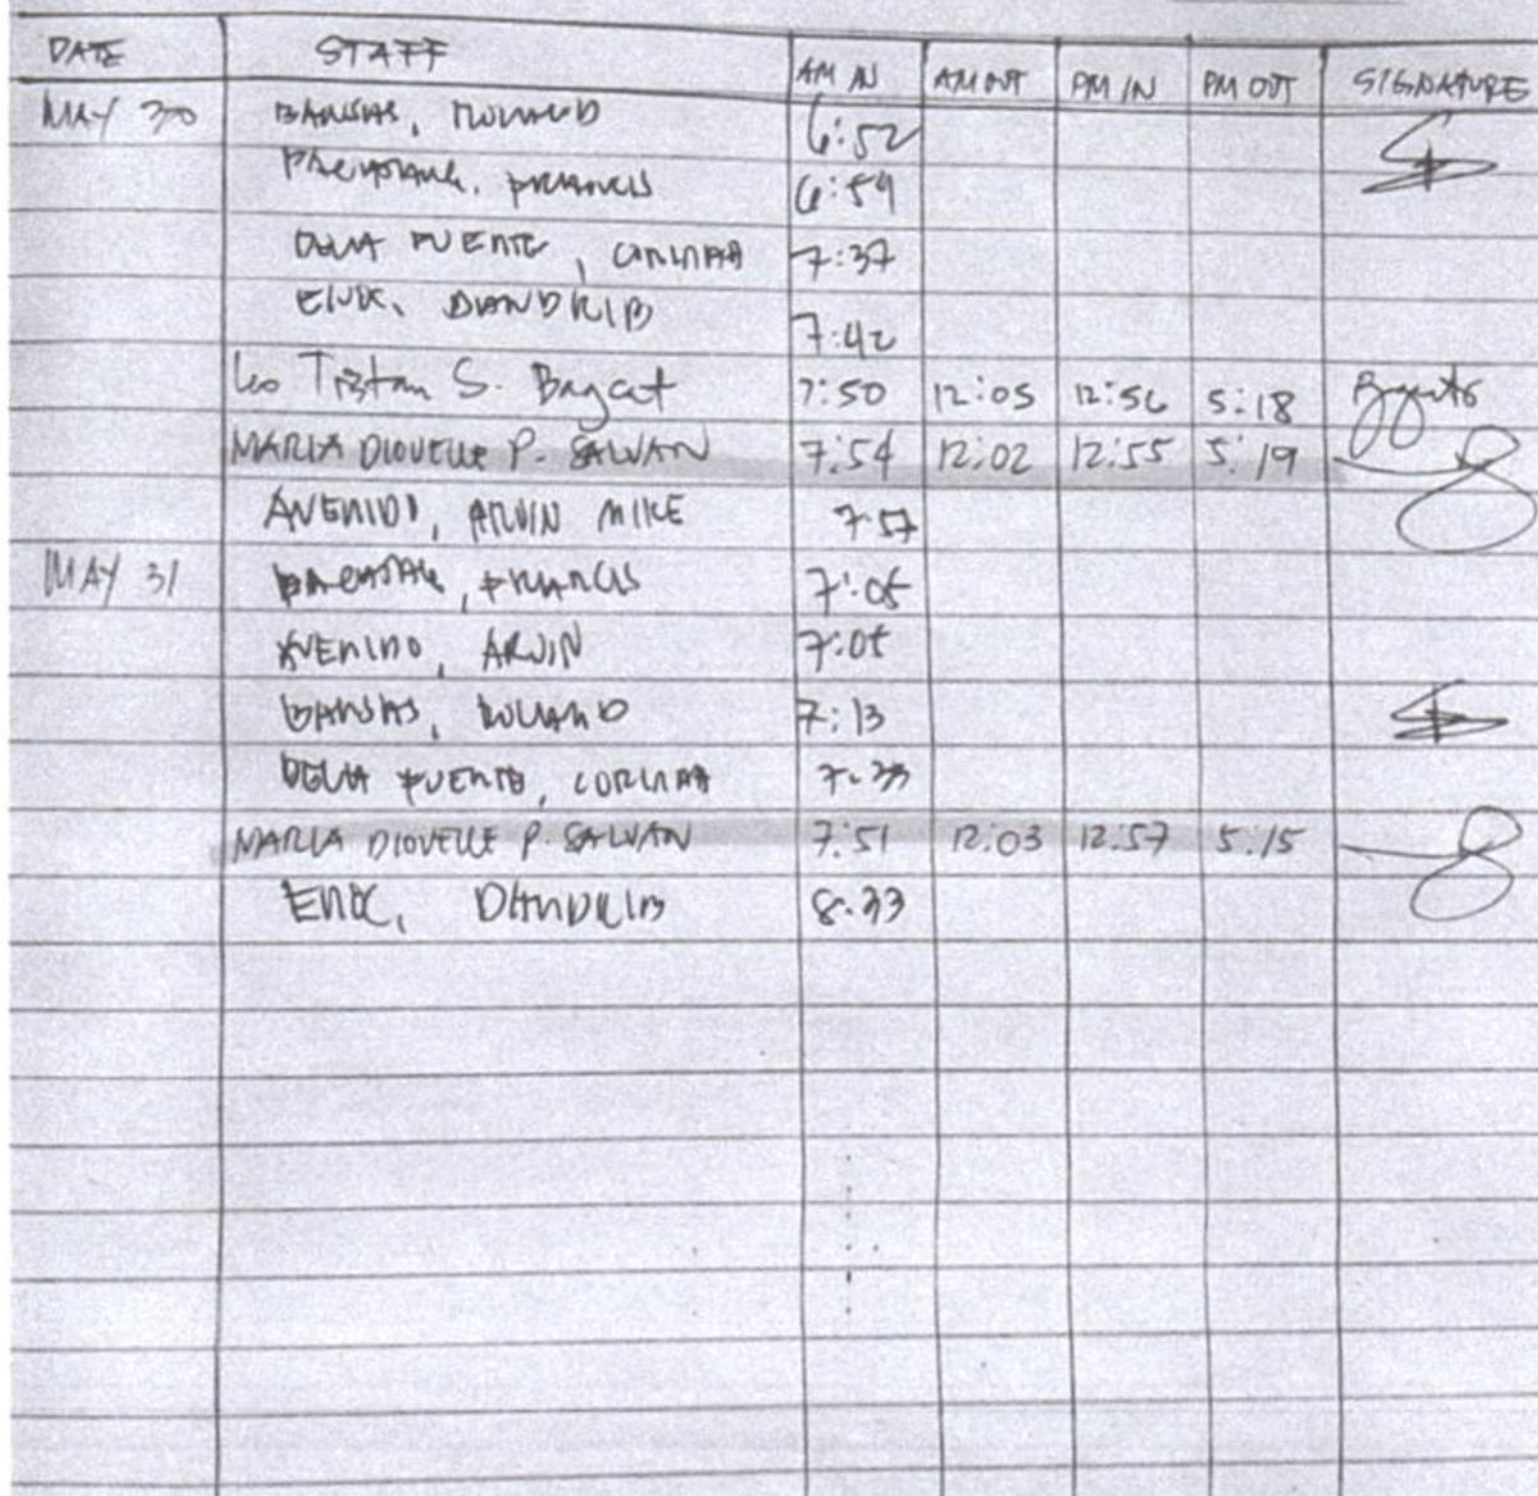 DATE STAFF AM IN AM OUT PM IN PM OUT SIGNATURE
MAY 30 BANSAS, ROLAND 6:52
FRANCIS 6:59
DELA PUENTE, CORINNA 7:37
7:42
Leo Tristan S. Baycat 7:50 12:05 12:56 5:18
MARIA DIOVELLE P. SALVAN 7:54 12:02 12:55 5:19
AVENIDO, ARVIN MIKE 7:57
MAY 31 FRANCIS 7:05
AVENIDO, ARVIN 7:05
BANSAS, ROLAND 7:13
DELA PUENTE, CORINNA 7:33
MARIA DIOVELLE P. SALVAN 7:51 12:03 12:57 5:15
8:33